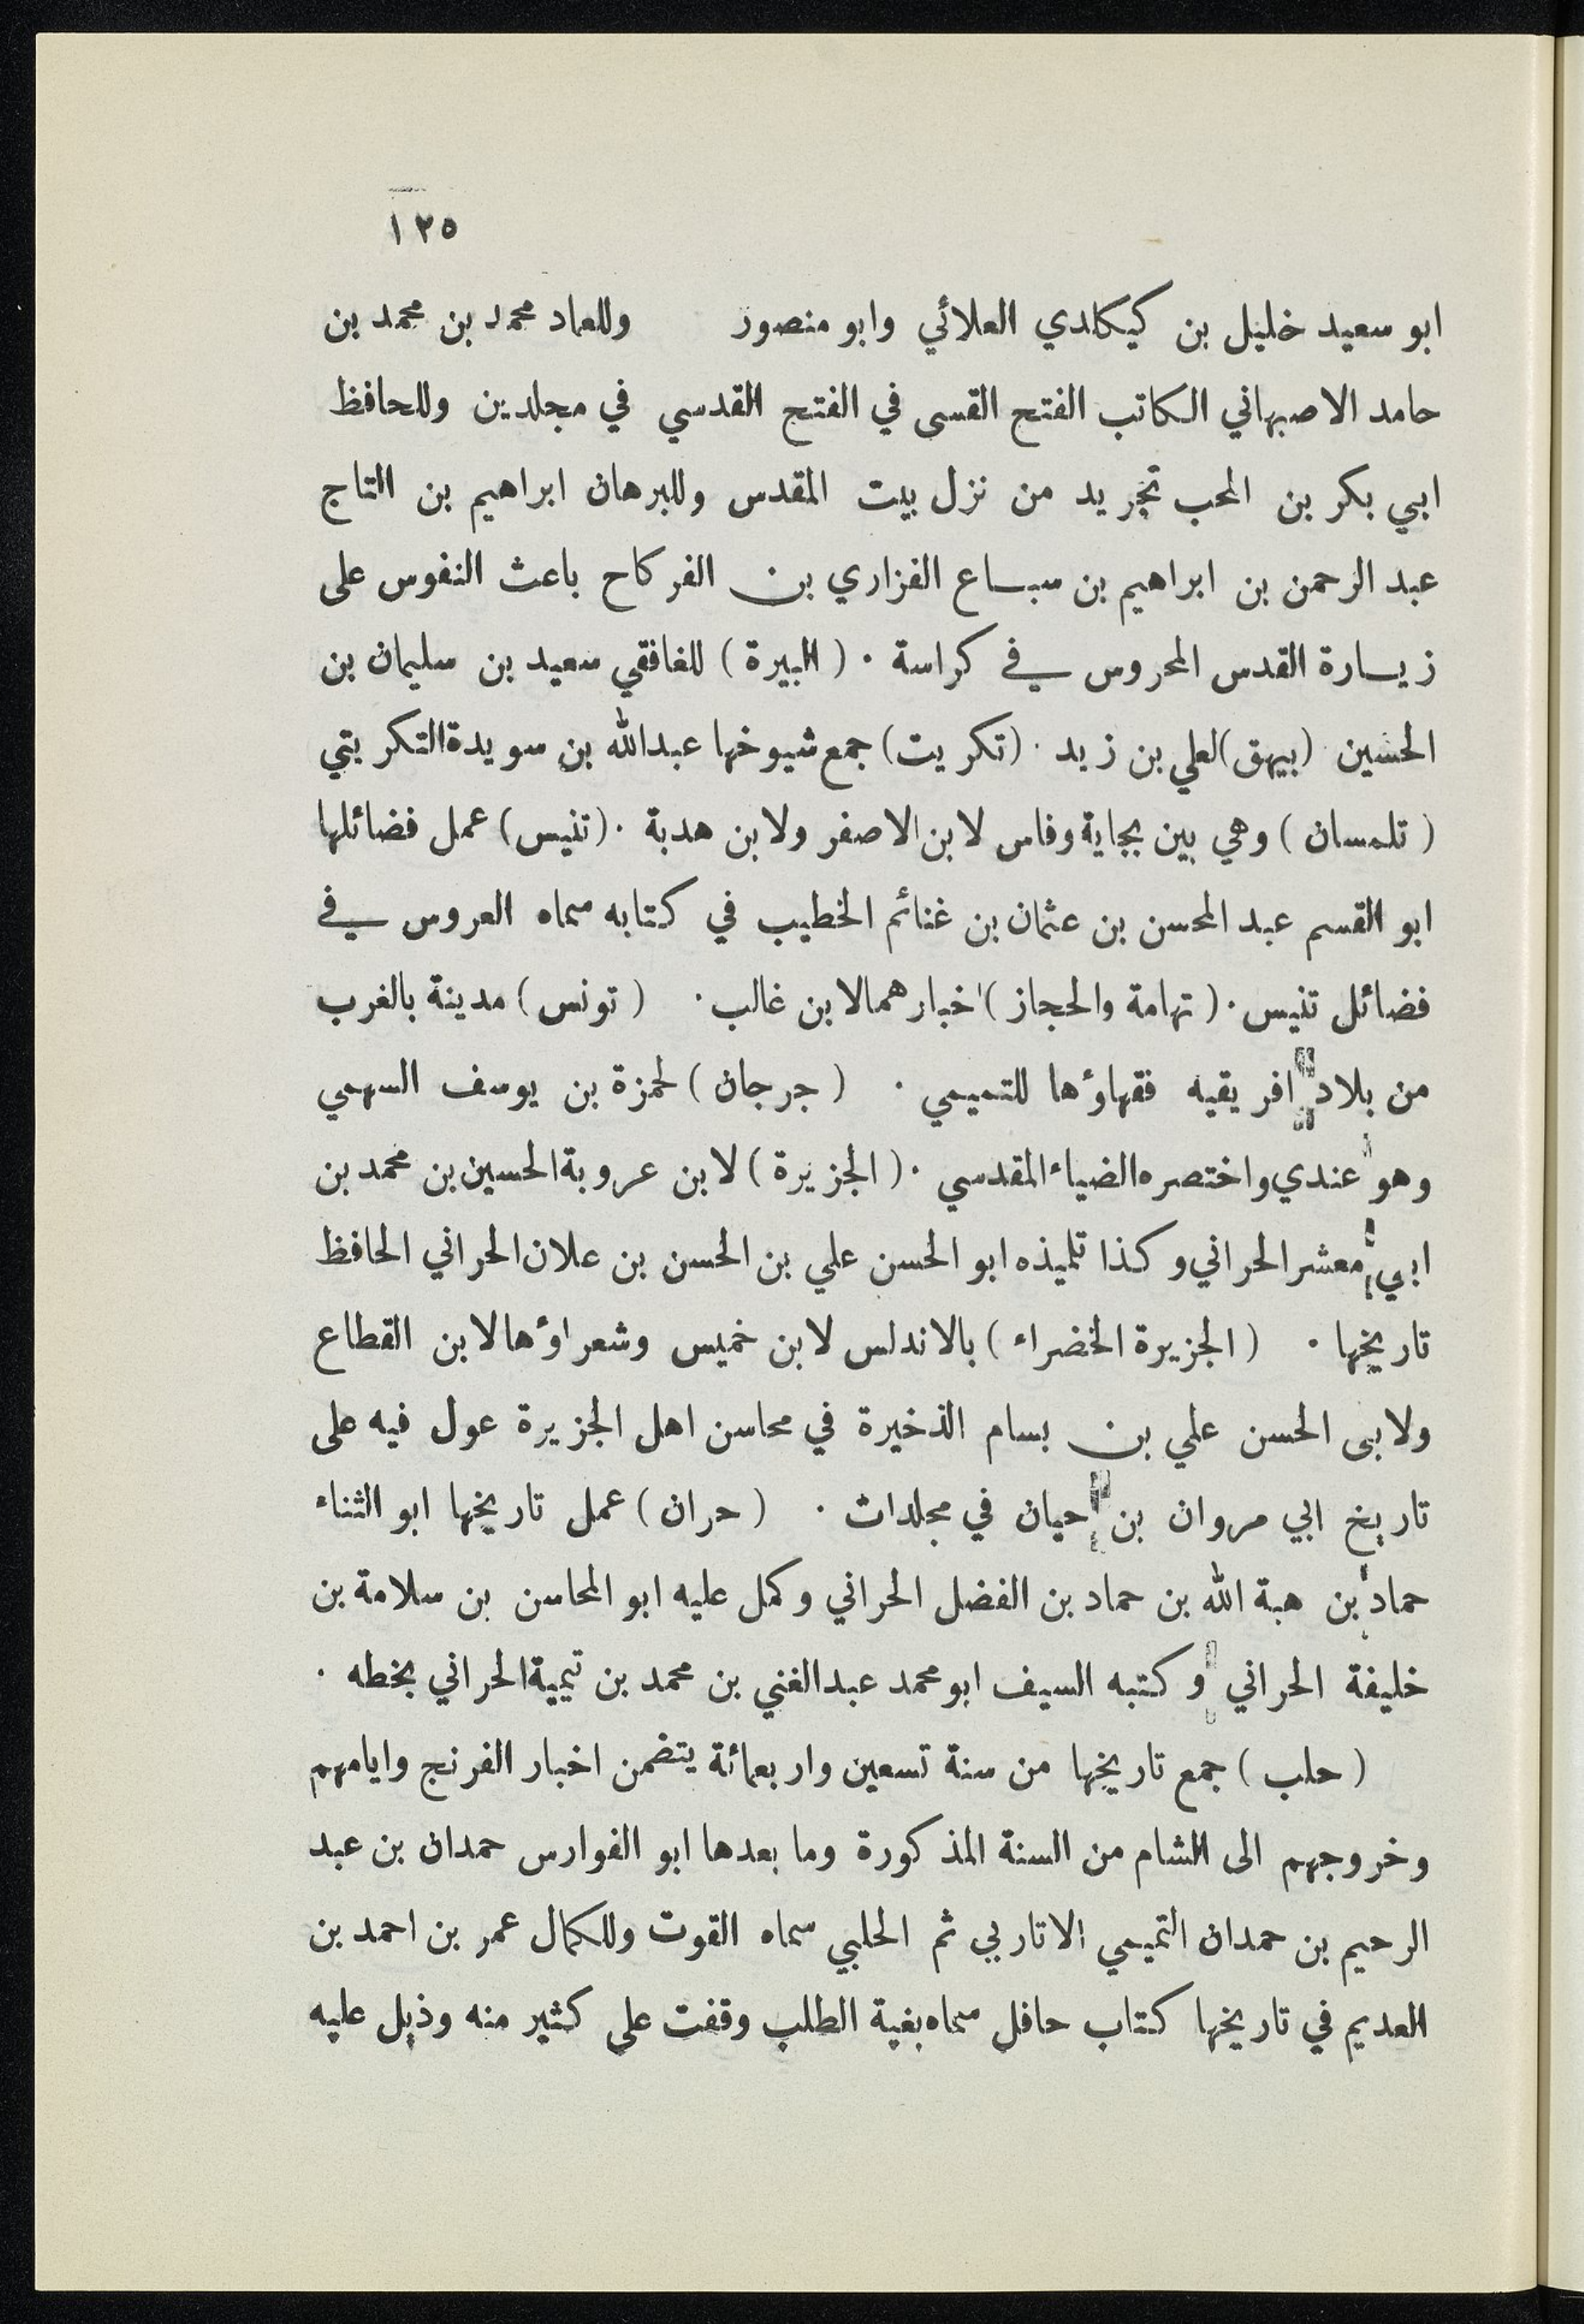 ١٢٥
ابو سعيد خليل بن كيكلدي العلائي وابو منصور وللعماد محمد بن محمد بن
حامد الاصبهاني الكاتب الفتح القسى في الفتح القدسي في مجلدين وللحافظ
ابي بكر بن المحب تجريد من نزل بيت المقدس وللبرهان ابراهيم بن التاج
عبد الرحمن بن ابراهيم بن سباع الفزاري بن الفركاح باعث النفوس على
زيارة القدس المحروس في كراسة . ( البيرة ) للغافقي سعيد بن سليمان بن
الحسين (بيهق) لعلي بن زيد . (تكريت) جمع شيوخها عبدالله بن سويدة التكريتي
( تلمسان ) وهي بين بجاية وفاس لابن الاصفر ولابن هدبة . (تنيس) عمل فضائلها
ابو القسم عبد المحسن بن عثمان بن غنائم الخطيب في كتابه سماه العروس في
فضائل تنيس . ( تهامة والحجاز ) اخبارهما لابن غالب . ( تونس ) مدينة بالغرب
من بلاد افريقيه فقهاؤها للتميمي . ( جرجان ) لحمزة بن يوسف السهمي
وهو عندي واختصره الضياء المقدسي . ( الجزيرة ) لابن عروبة الحسين بن محمد بن
ابي معشر الحراني وكذا تلميذه ابو الحسن علي بن الحسن بن علان الحراني الحافظ
تاريخها . ( الجزيرة الخضراء ) بالاندلس لابن خميس وشعراؤها لابن القطاع
ولابى الحسن علي بن بسام الذخيرة في محاسن اهل الجزيرة عول فيه على
تاريخ ابي مروان بن حيان في مجلدات . ( حران ) عمل تاريخها ابو الثناء
حماد بن هبة الله بن حماد بن الفضل الحراني وكمل عليه ابو المحاسن بن سلامة بن
خليفة الحراني وكتبه السيف ابو محمد عبدالغني بن محمد بن تيمية الحراني بخطه .
( حلب ) جمع تاريخها من سنة تسعين واربعمائة يتضمن اخبار الفرنج وايامهم
وخروجهم الى الشام من السنة المذكورة وما بعدها ابو الفوارس حمدان بن عبد
الرحيم بن حمدان التميمي الاتاربي ثم الحلبي سماه القوت وللكمال عمر بن احمد بن
العديم في تاريخها كتاب حافل سماه بغية الطلب وقفت على كثير منه وذيل عليه